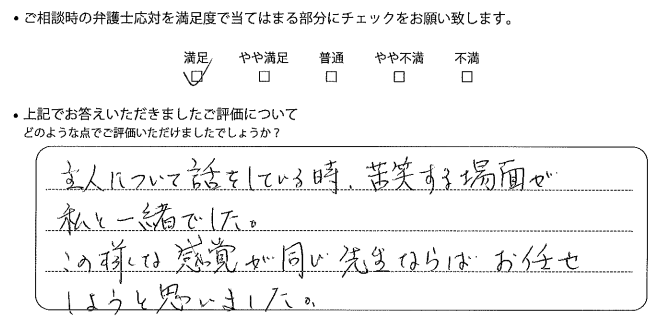 • ご相談時の弁護士応対を満足度で当てはまる部分にチェックをお願い致します。
満足 やや満足 普通 やや不満 不満
• 上記でお答えいただきましたご評価について
どのような点でご評価いただけましたでしょうか？
主人について話をしている時、苦笑する場面が
私と一緒でした。
この様な感覚が同じ先生ならば お任せ
しようと思いました。